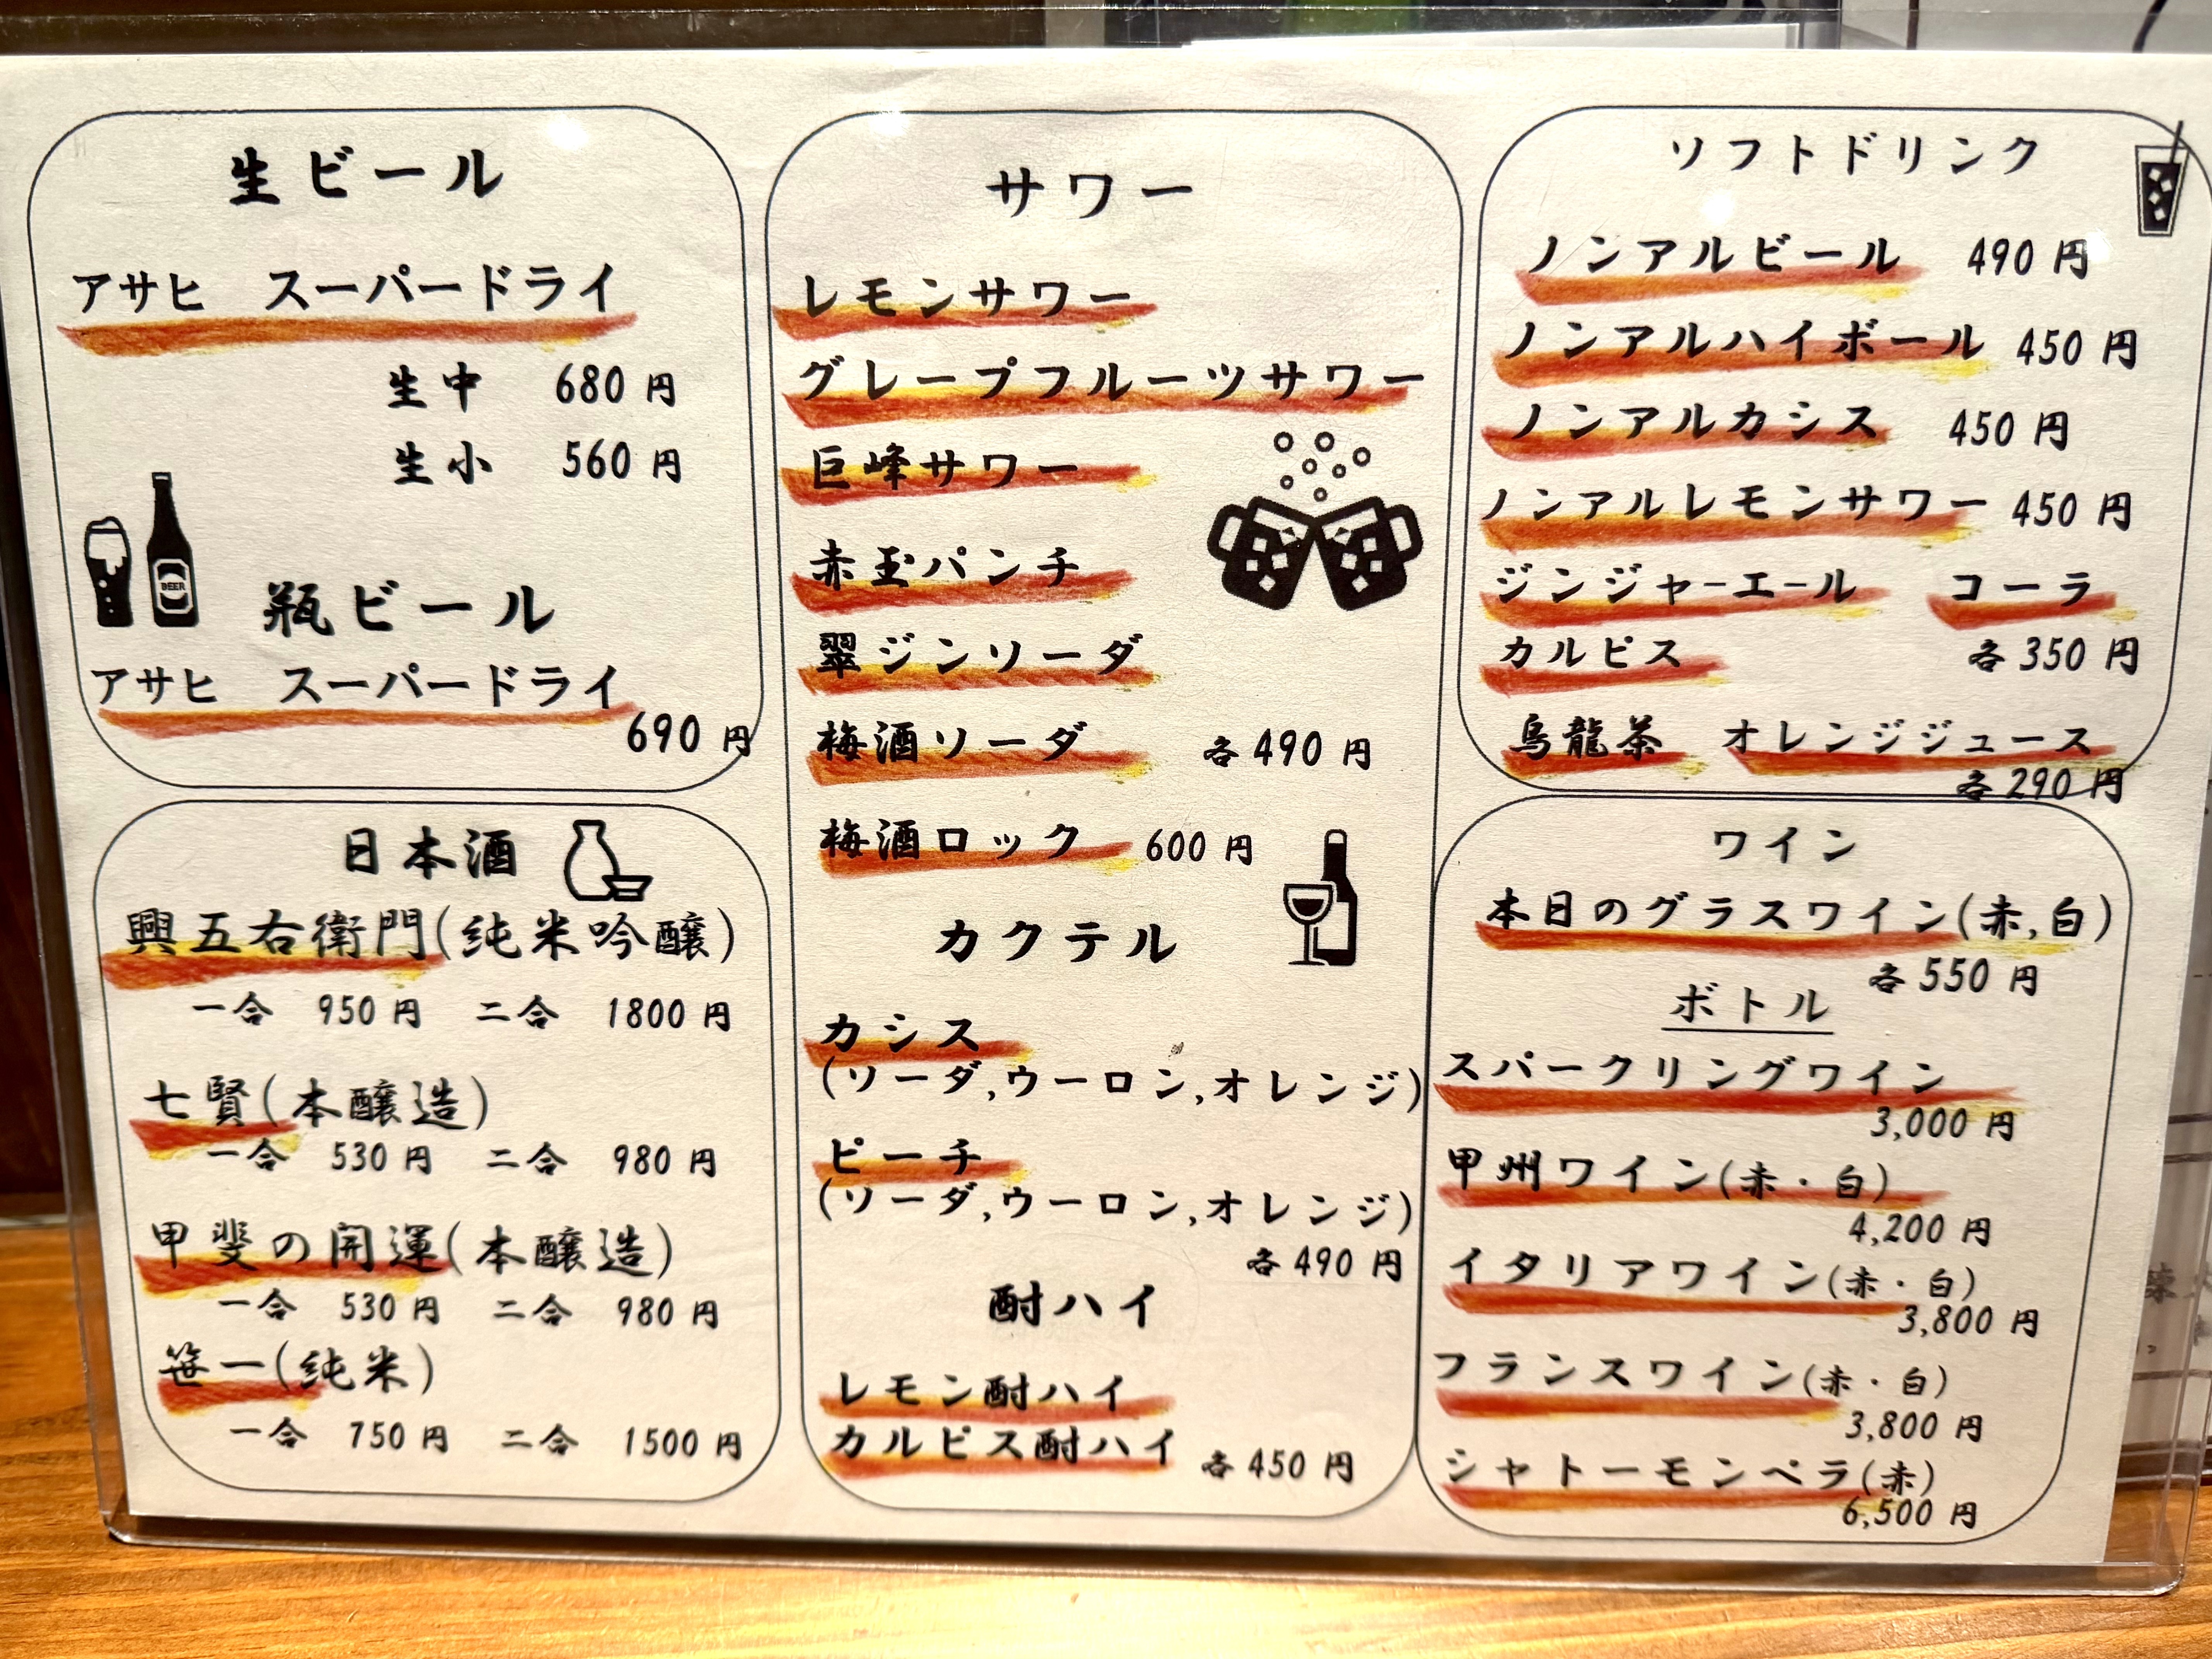 生ビール
アサヒ スーパードライ
生中 680円
生小 560円
BEER
瓶ビール
アサヒ スーパードライ
690円
日本酒
興五右衛門(純米吟醸)
一合 950円 二合 1800円
七賢(本醸造)
一合 530円 二合 980円
甲斐の開運(本醸造)
一合 530円 二合 980円
笹一(純米)
一合 750円 二合 1500円
サワー
レモンサワー
グレープフルーツサワー
巨峰サワー
赤玉パンチ
翠ジンソーダ
梅酒ソーダ 各490円
梅酒ロック 600円
カクテル
カシス
(ソーダ,ウーロン,オレンジ)
ピーチ
(ソーダ,ウーロン,オレンジ)
各490円
酎ハイ
レモン酎ハイ
カルピス酎ハイ 各450円
ソフトドリンク
ノンアルビール 490円
ノンアルハイボール 450円
ノンアルカシス 450円
ノンアルレモンサワー 450円
ジンジャーエール コーラ
カルピス 各350円
烏龍茶 オレンジジュース
各290円
ワイン
本日のグラスワイン(赤,白)
各550円
ボトル
スパークリングワイン
3,000円
甲州ワイン(赤・白)
4,200円
イタリアワイン(赤・白)
3,800円
フランスワイン(赤・白)
3,800円
シャトーモンペラ(赤)
6,500円